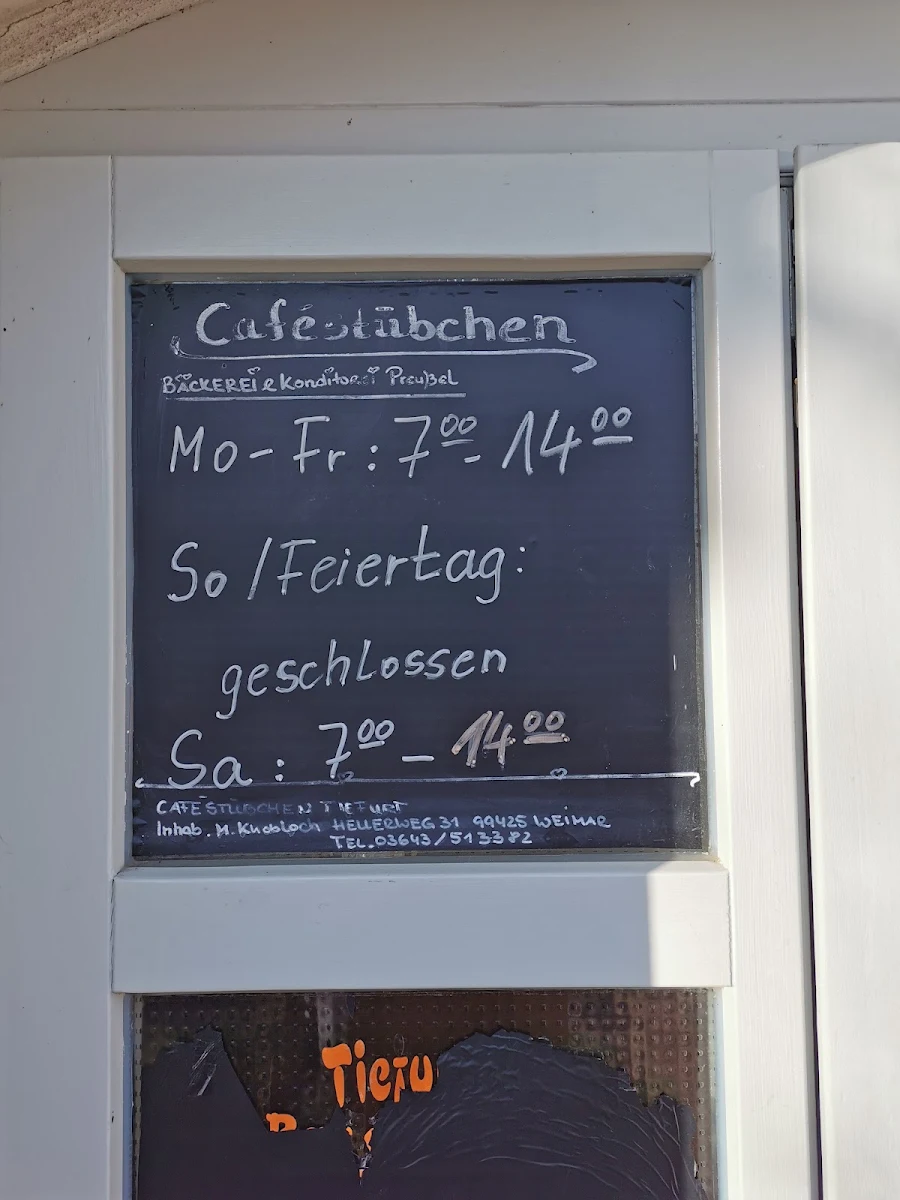 Caféstübchen
BÄCKEREI & Konditorei Preußel
Mo - Fr : 7⁰⁰ - 14⁰⁰
So / Feiertag :
geschlossen
Sa : 7⁰⁰ - 14⁰⁰
CAFÉSTÜBCHEN TIEFURT
Inhab. M. Knobloch HELLERWEG 31 99425 WEIMAR
TEL. 03643/513382
Tiefu